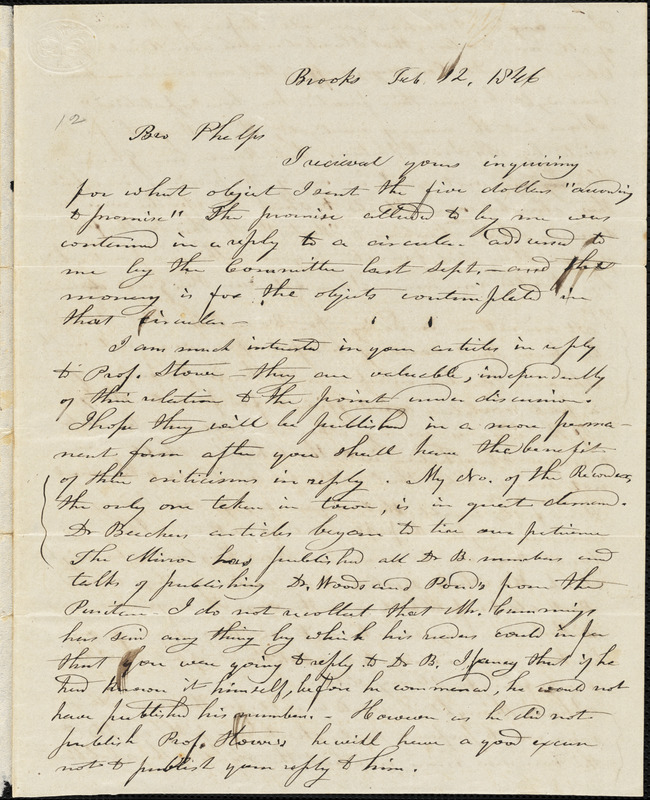 Brooks Feb. 12, 1846
12
Bro Phelps
I recieved yours inquiring
for what object I sent the five dollars "according
to promise" The promise alluded to by me was
contained in a reply to a circular addressed to
me by the Committee last Sept. - and the
money is for the objects contemplated in
that circular -
I am much intersted in your articles in reply
to Prof. Stowe - they are valuable, independently
of their relation to the point under discussion.
I hope they will be published in a more perma-
nent form after you shall have the benefit
of their criticisms in reply. My No. of the Recorder,
the only one taken in town, is in great demand.
Dr Beechers articles began to tire our patience
The Mirror has published all Dr B. numbers and
talks of publishing Dr. Woods and Pond's from the
Puritan - I do not recollect that Mr. Cummings
has said any thing by which his readers could infer
that you were going to reply to Dr B. I fancy that if he
had known it himself, before he commenced, he would not
have published his numbers. - However as he did not
publish Prof. Stowe's he will have a good excuse
not to publish your reply to him.